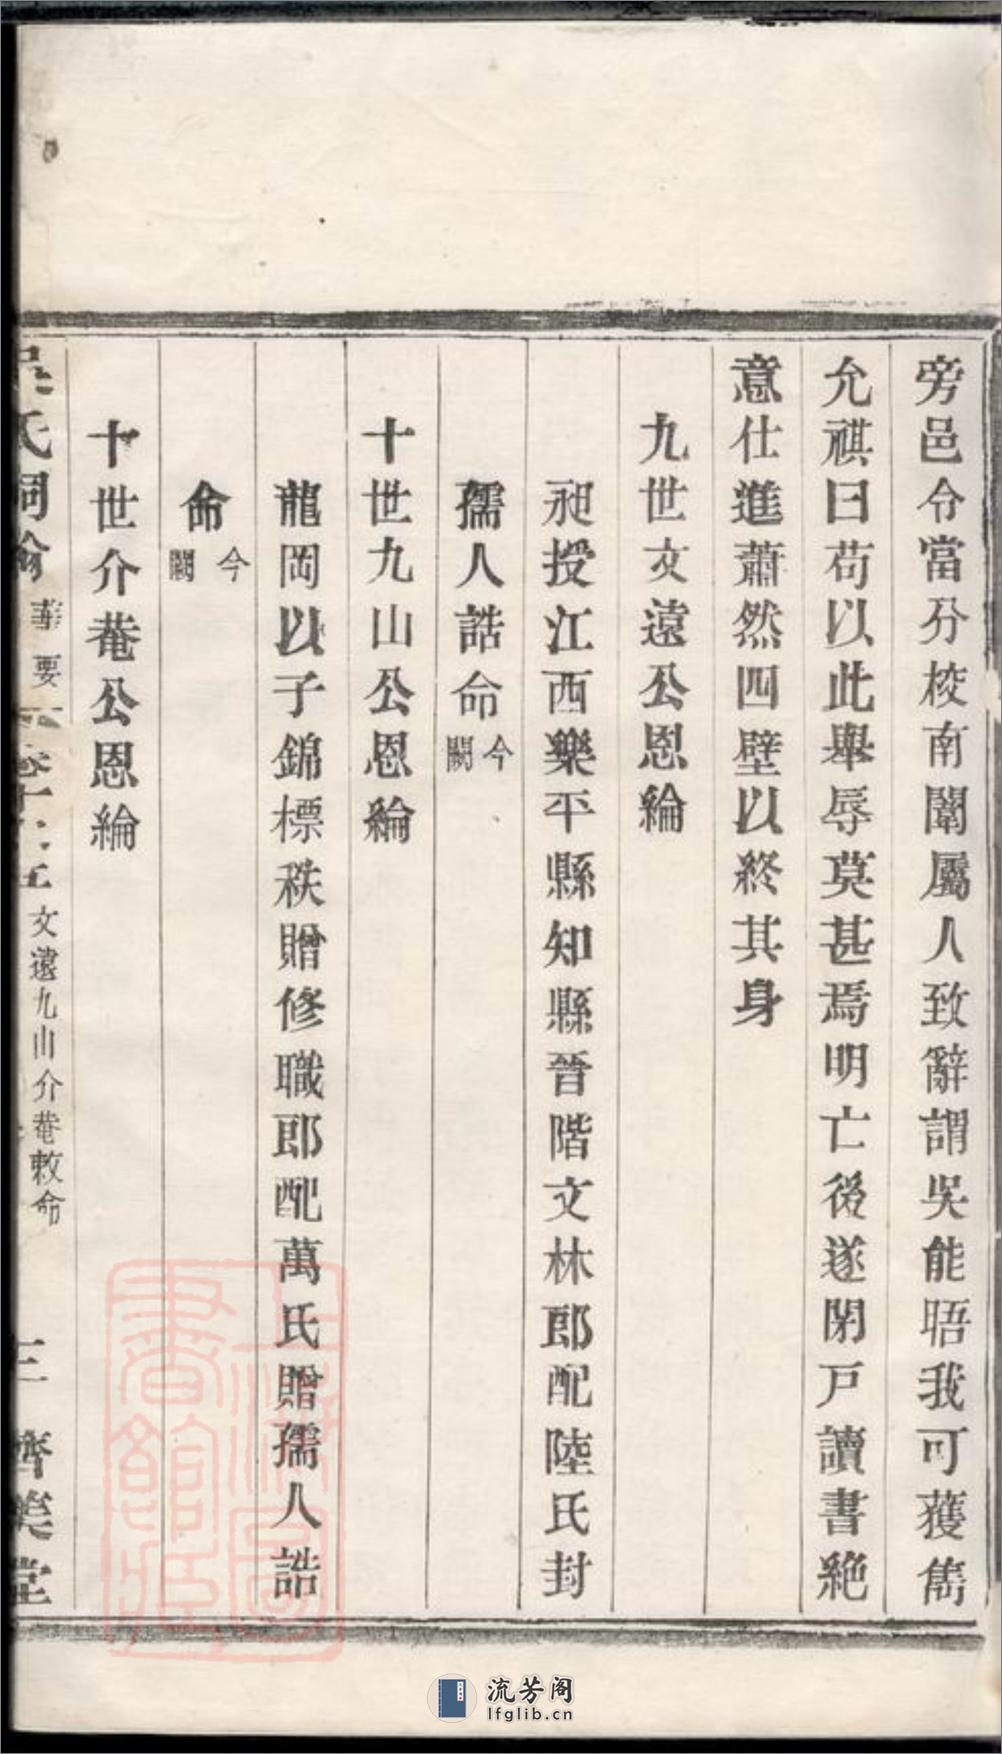 旁邑令當分校南闈屬人致辭謂吳能晤我可獲雋
允祺曰苟以此舉辱莫甚焉明亡後遂閉戸讀書絶
意仕進蕭然四壁以終其身
九世文遠公恩綸
昶授江西樂平縣知縣晉階文林郎配陸氏封
孺人誥命今闕
十世九山公恩綸
龍岡以子錦標秩贈修職郎配萬氏贈孺人誥
命今闕
十世介菴公恩綸
吳氏祠 要 文遠九山介菴敕命 三 濟美堂
上海圖書館藏
流芳阁
lfglib.cn